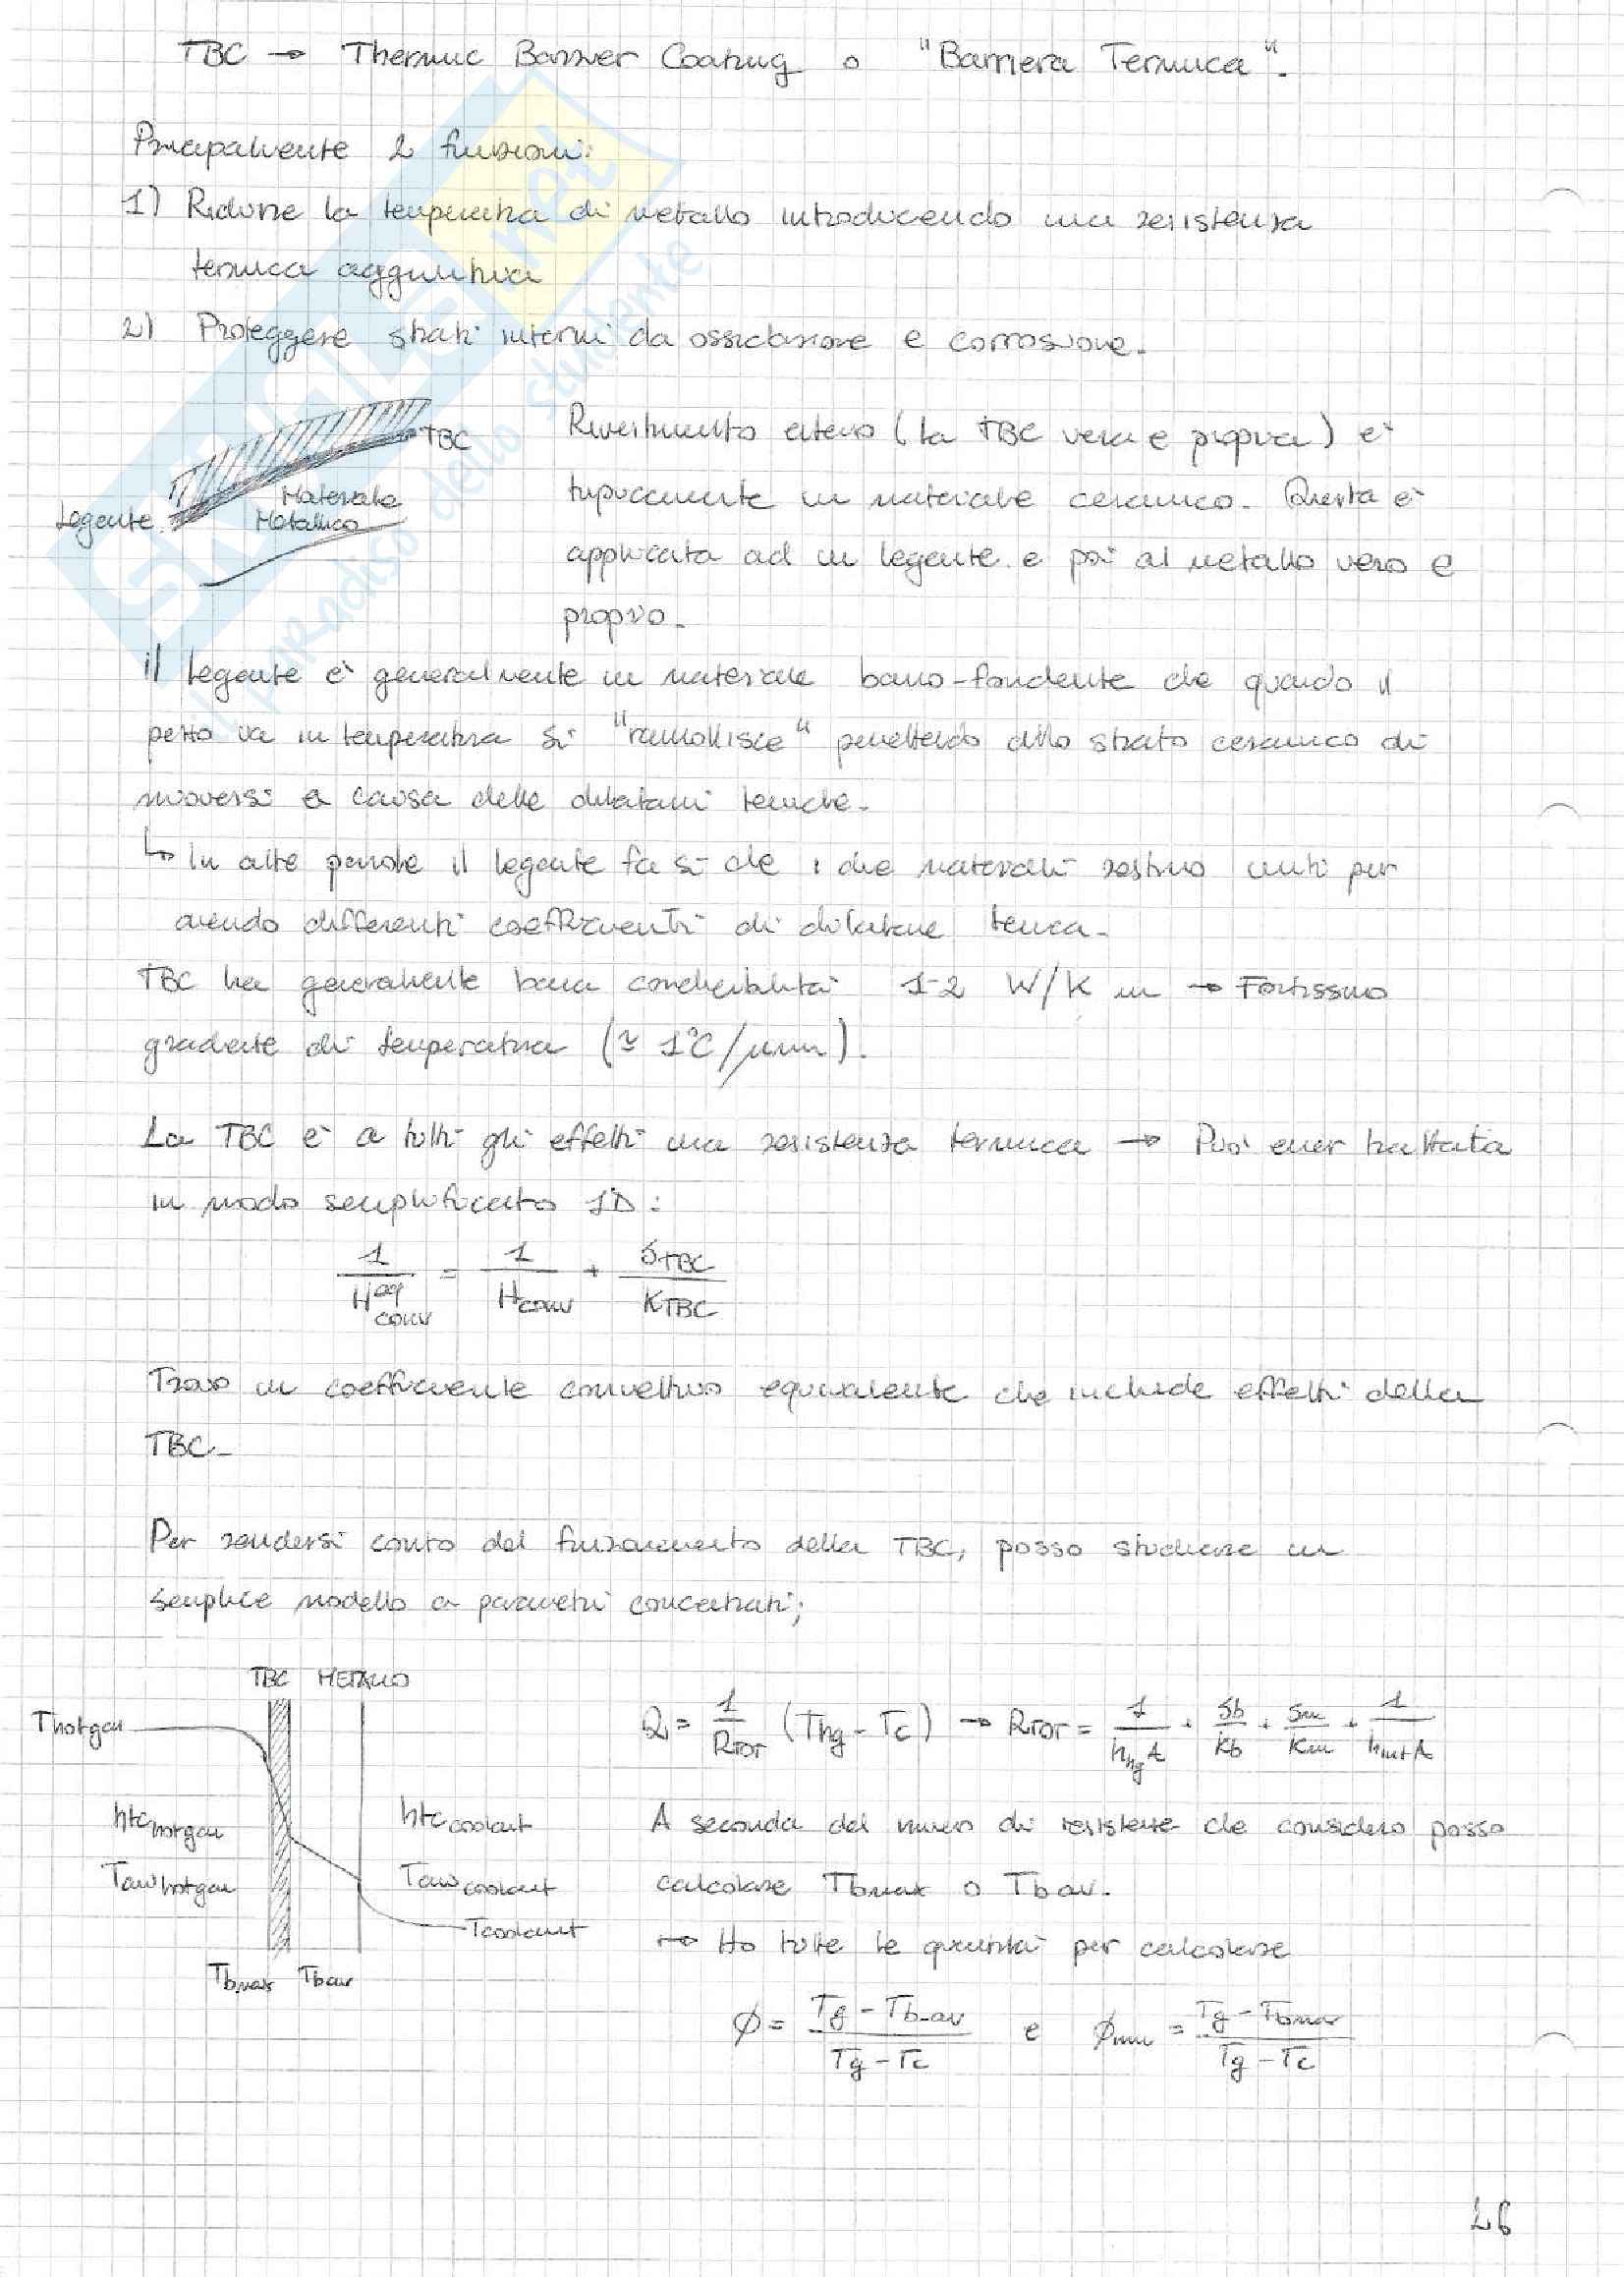 TBC → Thermic Barrier Coating o "Barriera Termica".
Principalmente 2 funzioni:
1) Ridurre la temperatura di metallo introducendo una resistenza
termica aggiuntiva
2) Proteggere strati interni da ossidazione e corrosione.
TBC
Materiale
Legente
Metallico
Rivestimento esterno (la TBC vera e propria) è
tipicamente in materiale ceramico. Questa è
applicata ad un legente e poi al metallo vero e
proprio.
il legente è generalmente in materiale basso-fondente che quando il
pezzo va in temperatura si "rammollisce" permettendo allo strato ceramico di
muoversi a causa delle dilatazioni termiche.
↳ In altre parole il legente fa sì che i due materiali restino uniti pur
avendo differenti coefficienti di dilatazione termica.
TBC ha generalmente bassa conducibilità 1-2 W/K m → Fortissimo
gradiente di temperatura (≃ 1°C/μm).
La TBC è a tutti gli effetti una resistenza termica → Può esser trattata
in modo semplificato 1D:
1/H^eq_conv = 1/H_conv + S_TBC/K_TBC
Trovo un coefficiente convettivo equivalente che include effetti della
TBC.
Per rendersi conto del funzionamento della TBC, posso studiare un
semplice modello a parametri concentrati;
TBC METALLO
Thotgas
htc hotgas
Taw hotgas
htc coolant
Taw coolant
Tcoolant
Tbmax Tbav
Q = 1/R_TOT (Thg - Tc) → R_TOT = 1/(h_hg A) + Sb/Kb + Sm/Km + 1/(h_int A)
A seconda del numero di resistenze che considero posso
calcolare Tbmax o Tbav.
↦ Ho tutte le quantità per calcolare
ϕ = (Tg - Tb-av)/(Tg - Tc) e ϕmin = (Tg - Tbmax)/(Tg - Tc)
26
SKUOLA.net
il paradiso dello studente